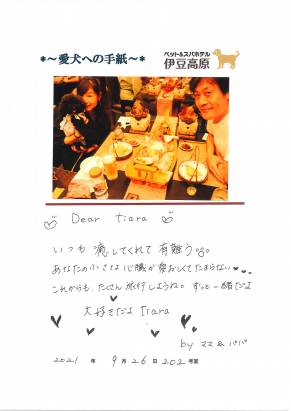 *～愛犬への手紙～*
ペット&スパホテル
伊豆高原
Dear tiara
いつも癒してくれて有難う。
あなたの小さな心臓が愛おしくてたまらない
これからも、たくさん旅行しようね。ずっと一緒だよ
大好きだよ tiara
by ママ&パパ
2021 年 9 月 26 日 202 号室